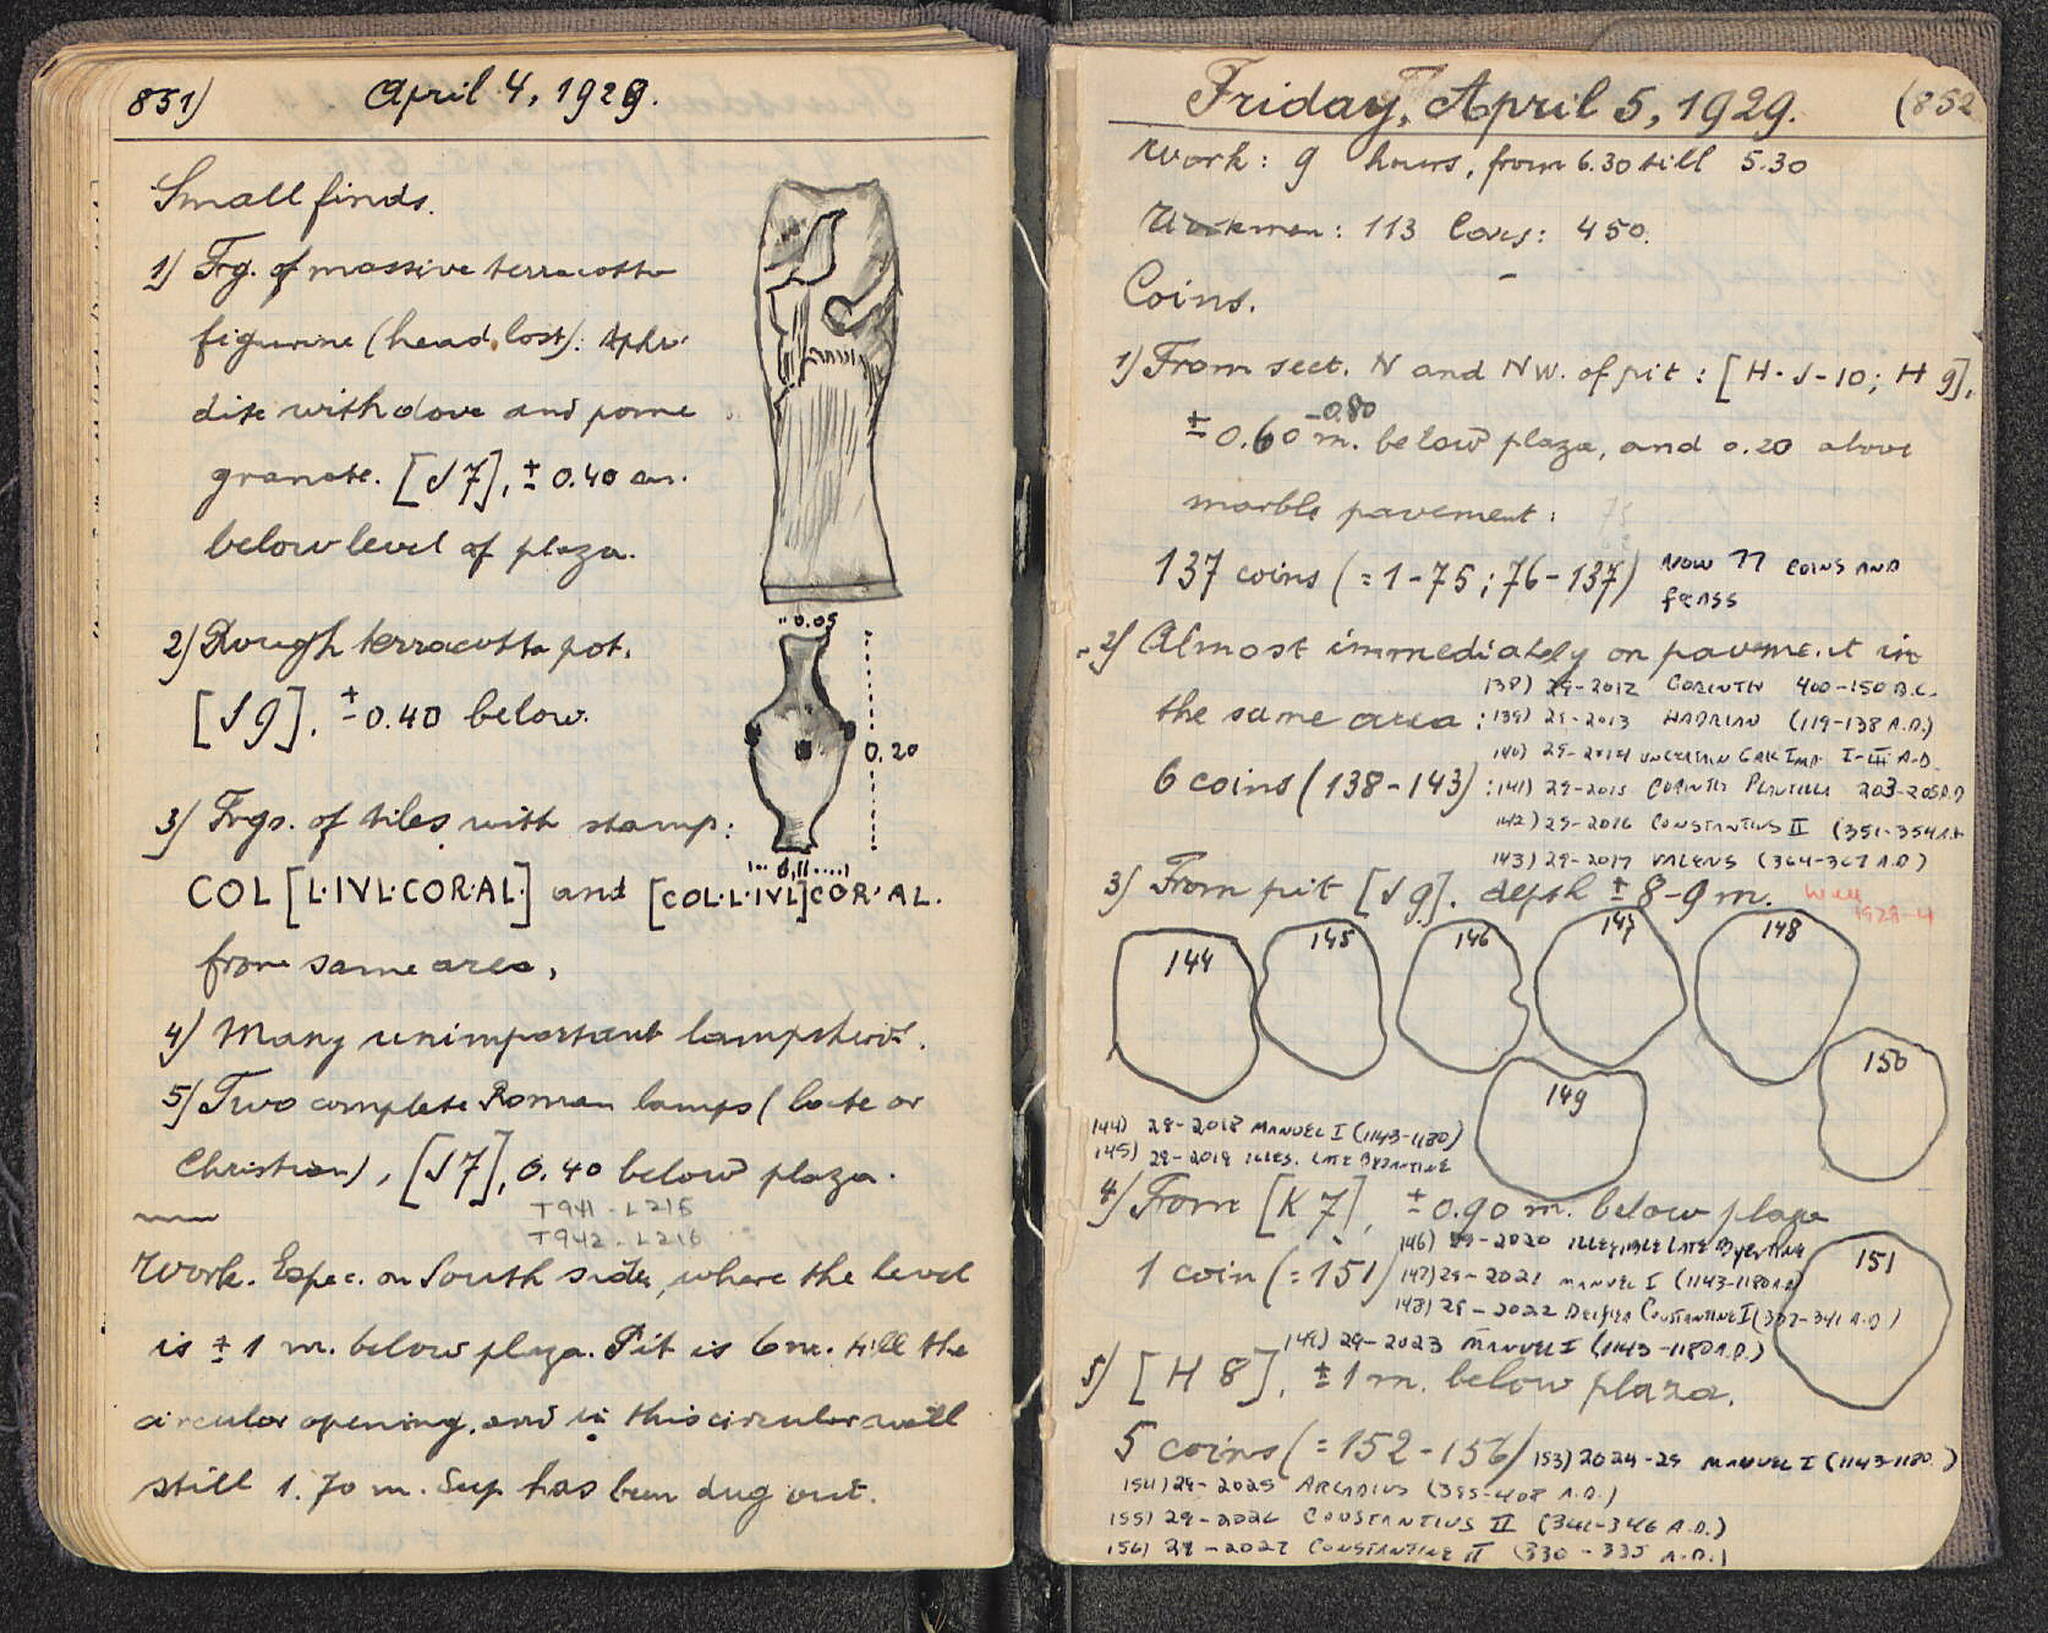 851)
April 4, 1929.
Small finds.
1) Frg. of massive terracotta
figurine (head lost): Aphro
dite with dove and pome
granate. [J 7], ± 0.40 m.
below level of plaza.
2) Rough terracotta pot.
[J 9], ± 0.40 below.
0.05
0.20
0,11
3) Frgs. of tiles with stamp:
COL [L·IVL·COR·AL·] and [COL·L·IVL]COR·AL.
from same area,
4) Many unimportant lampsherds.
5) Two complete Roman lamps (late or
Christian), [J 7], 0.40 below plaza.
T941 - L215
T942 - L216
Work. Espec. on South side, where the level
is ± 1 m. below plaza. Pit is 6 m. till the
circular opening, and in this circular well
still 1.70 m. deep has been dug out.
Friday, April 5, 1929.
(852
Work: 9 hours, from 6.30 till 5.30
Workmen: 113 Cars: 450.
Coins.
1) From sect. N and NW. of pit: [H-J-10; H 9],
-0.80
± 0.60 m. below plaza, and 0.20 above
marble pavement:
75
137 coins (= 1-75; 76-137)
NOW 77 COINS AND
FRGSS
2) Almost immediately on pavement in
138) 29-2012 CORINTH 400-150 B.C.
the same area:
139) 29-2013 HADRIAN (119-138 A.D.)
140) 29-2014 UNCERTAIN GRK IMP. I-III A.D.
6 coins (138-143):
141) 29-2015 CORINTH PLAUTILLA 203-205 A.D
142) 29-2016 CONSTANTIUS II (351-354 A.D
143) 29-2017 VALENS (364-367 A.D)
3) From pit [J 9]. depth ± 8-9 m.
Well
1929-4
144
145
146
147
148
149
150
144) 29-2018 MANUEL I (1143-1180)
145) 29-2019 ILLEG. LATE BYZANTINE
4) From [K 7], ± 0.90 m. below plaza
146) 29-2020 ILLEGIBLE LATE BYZANTINE
1 coin (= 151)
151
147) 29-2021 MANUEL I (1143-1180 A.D)
148) 29-2022 CONSTANTINE I (337-341 A.D)
149) 29-2023 MANUEL I (1143-1180 A.D.)
5) [H 8], ± 1 m. below plaza.
5 coins (= 152-156)
153) 2024-29 MANUEL I (1143-1180 )
154) 29-2025 ARCADIUS (395-408 A.D.)
155) 29-2026 CONSTANTIUS II (341-346 A.D.)
156) 29-2027 CONSTANTINE II (330-335 A.D.)